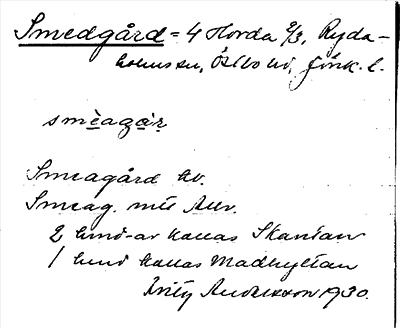 Smedgård = 4 Horda 2/3, Ryda-
holms sn, Östbo hd, Jönk. l.
smèagạ̀r
Smeagård kv.
Smeag. mit Auv.
2 hmd-ar kallas Skantan
1 hmd kallas Madhyltan
Andersson 1930.